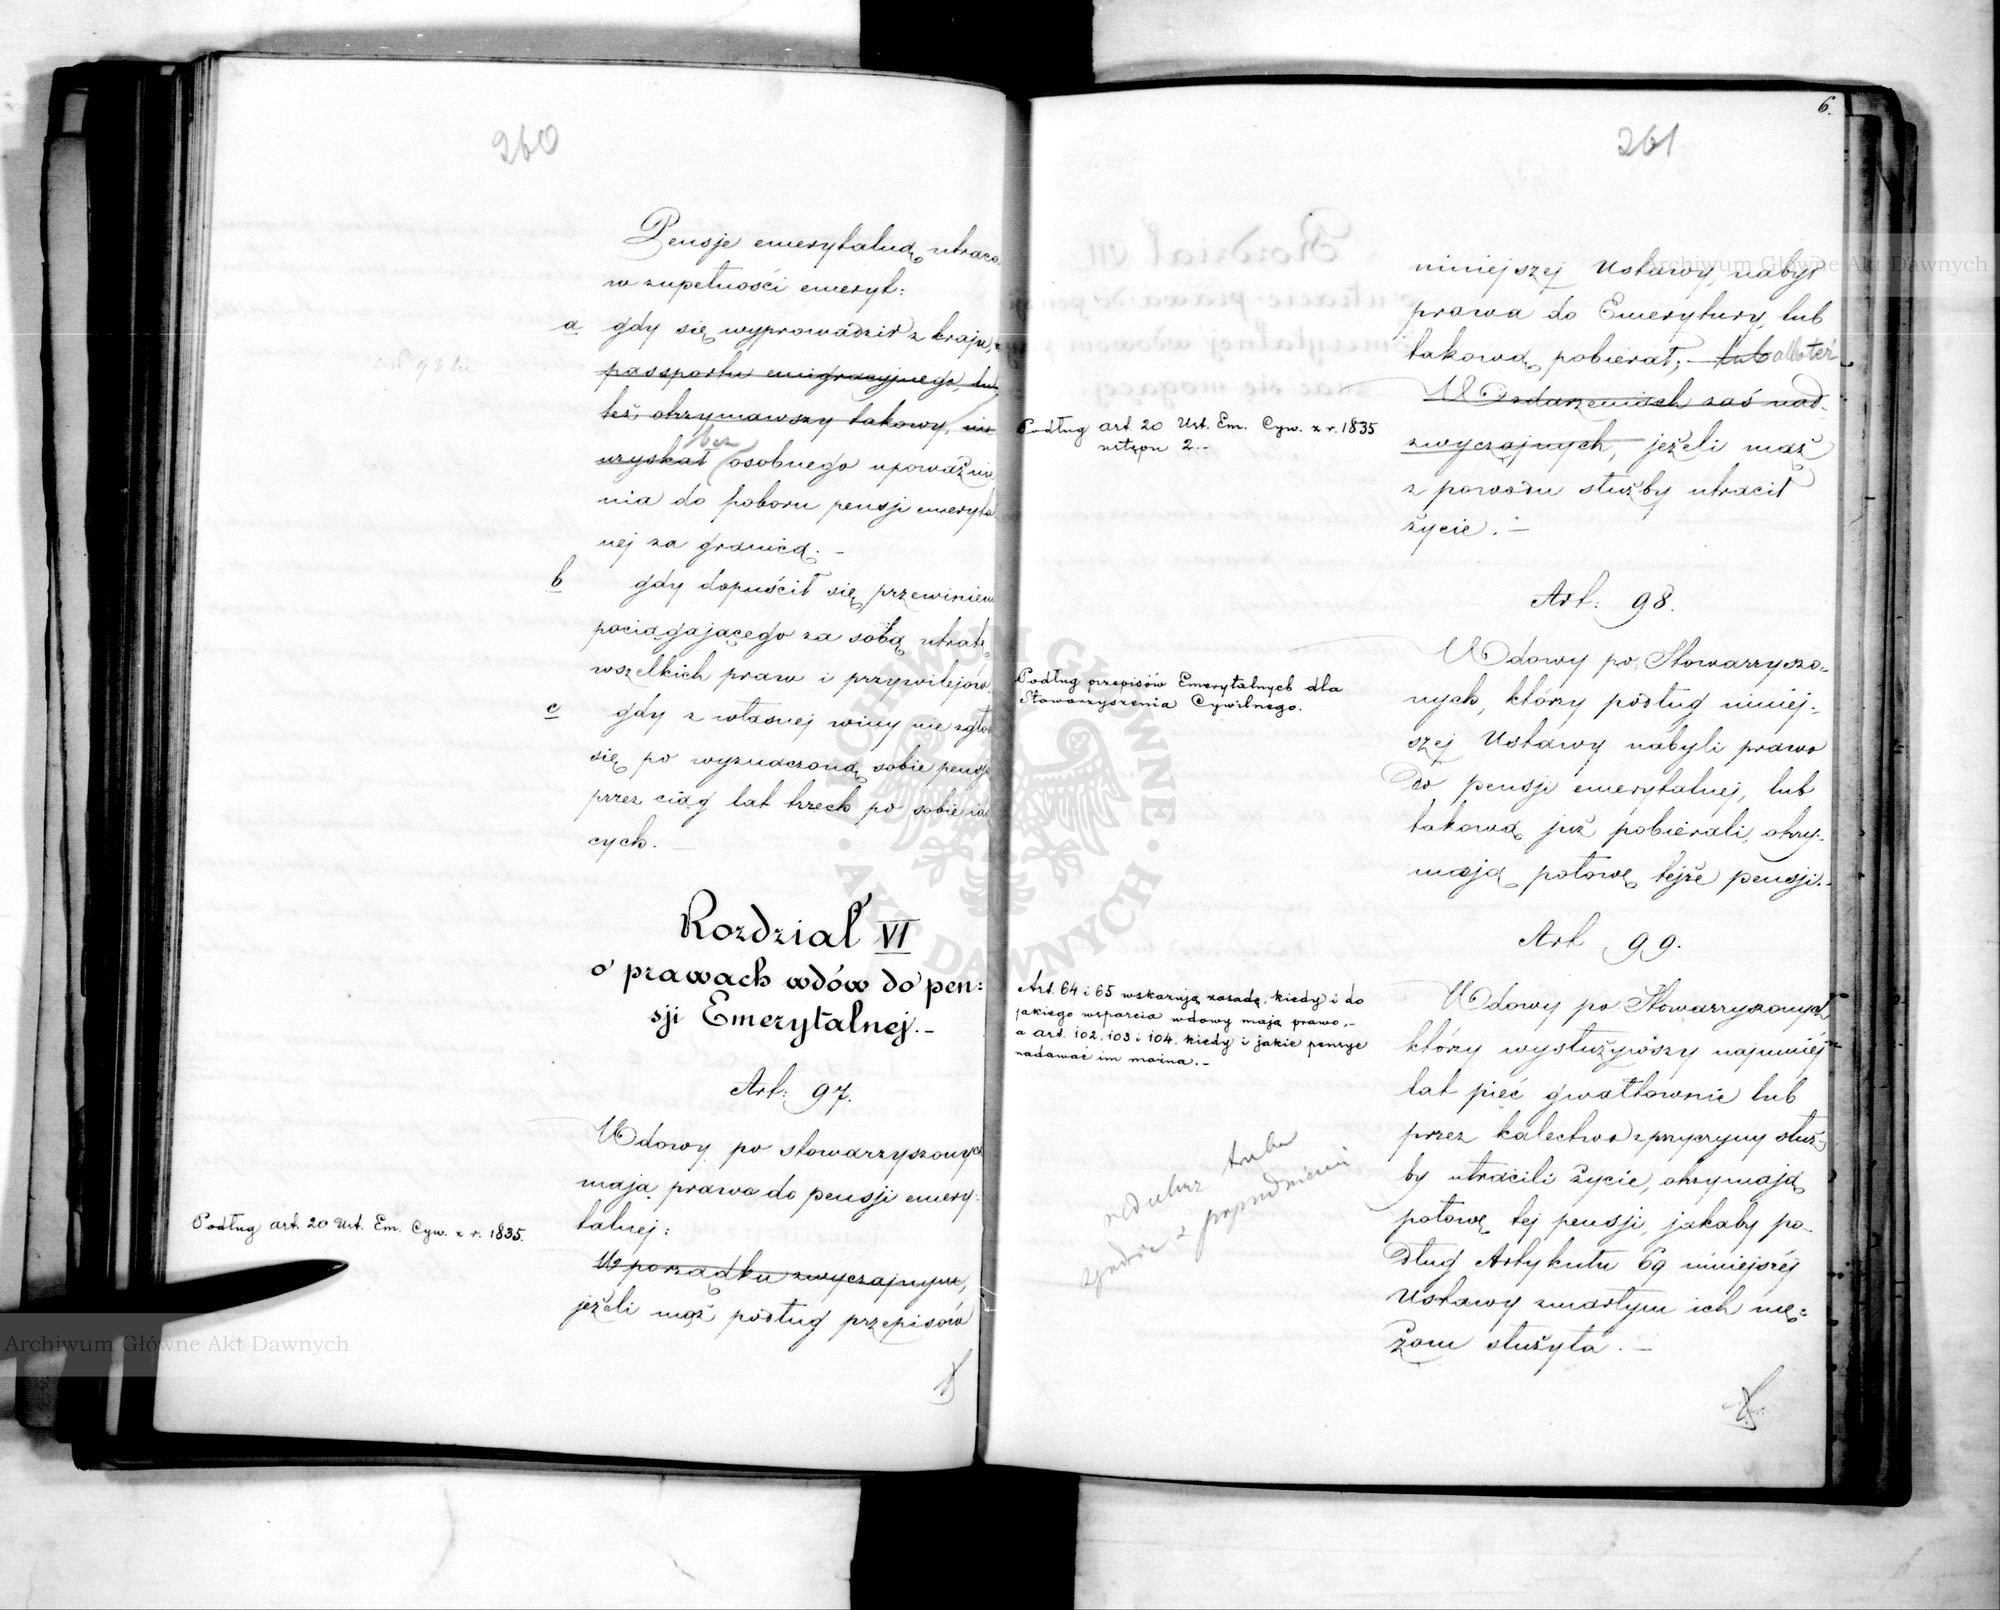 260
Pensje emerytalną utraca
w zupełności emeryt:
a gdy się wyprowadził z kraju, z
passportu emigracyjnego, lub
też otrzymawszy takowy, nie
bez
uzyskał osobnego upoważnie
nia do poboru pensji emeryta
nej za granicą. –
b gdy dopuścił się przewinien
pociągającego za sobą utratę
wszelkich praw i przywilejów.
c gdy z własnej winy nie zgło
się po wyznaczoną sobie pensją
przez ciąg lat trzech po sobie idą
cych. –
Rozdział VI
o prawach wdów do pen:
sji Emerytalnej.–
Art: 97.
Wdowy po stowarzyszonych
mają prawo do pensji emery:
talnej:
Podług art. 20 Ust. Em. Cyw. z r. 1835.
W porządku zwyczajnym,
jeżeli mąż podług przepisów
6.
261
niniejszej Ustawy, nabył
prawa do Emerytury, lub
takową pobierał; – lub alboteż
W zdarzeniach zaś nad-
Podług art. 20 Ust. Em. Cyw. z r. 1835
ustępu 2.–
zwyczajnych, jeżeli mąż
z powodu służby utracił
życie. –
Art: 98.
Podług przepisów Emerytalnych dla
Stowarzyszenia Cywilnego.
Wdowy po Stowarzyszo-
nych, którzy podług niniej-
szej Ustawy nabyli prawo
do pensji emerytalnej, lub
takową już pobierali, otrzy-
mają połowę tejże pensji.–
Art 99.
Art. 64 i 65 wskazują zasadę, kiedy i do
jakiego wsparcia wdowy mają prawo,–
a art. 102, 103 i 104. kiedy i jakie pensye
nadawać im można.–
Wdowy po Stowarzyszonych
którzy wysłużywszy najmniej
lat pięć gwałtownie lub
przez kalectwo z przyczyny służ-
by utracili życie, otrzymają
połowę tej pensji, jakaby po-
dług Artykułu 69 niniejszej
Ustawy zmarłym ich mę:
żom służyła. –
Archiwum Główne Akt Dawnych
Archiwum Główne Akt Dawnych
ARCHIWUM GŁÓWNE · AKT DAWNYCH ·